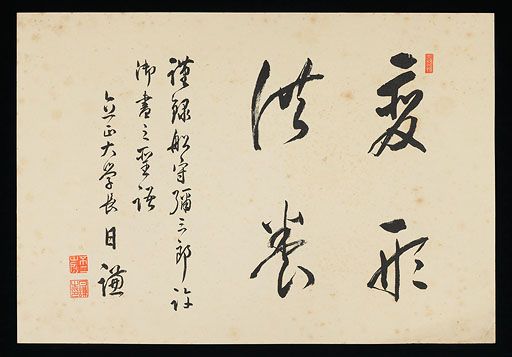 変形
供養
謹録船守彌三郎許
御書之聖語
立正大学長 日謙